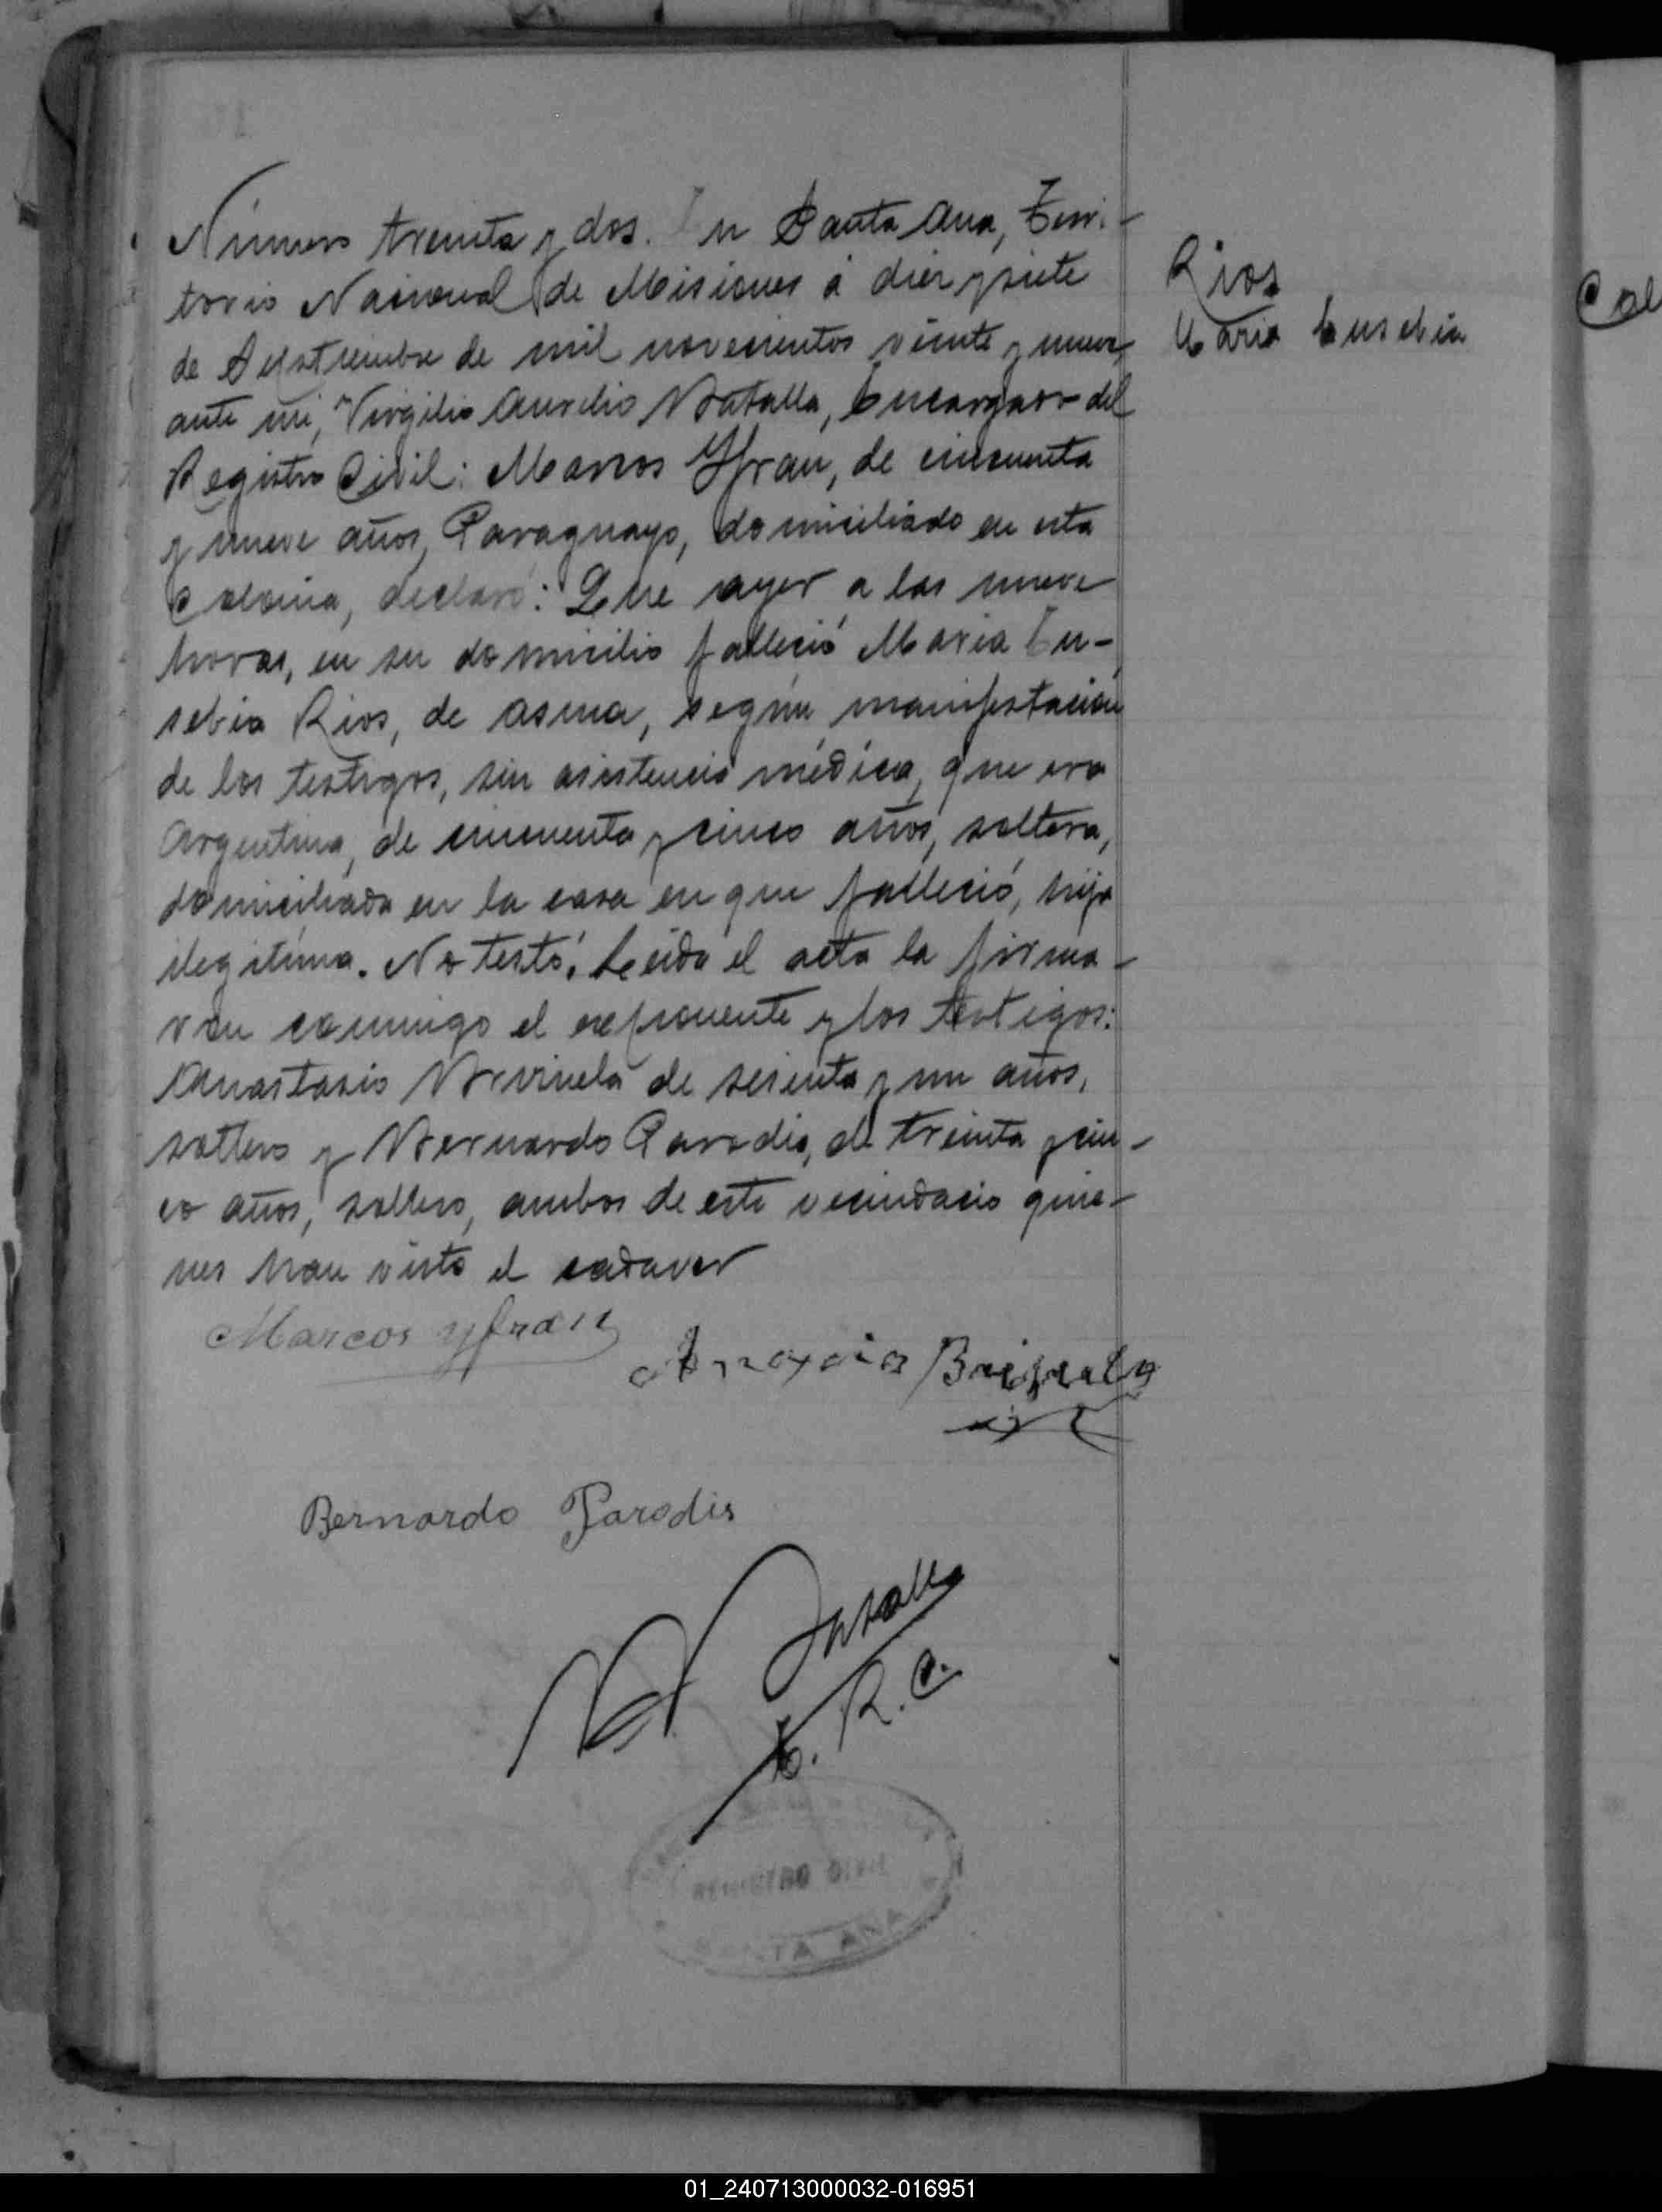 Número treinta y dos. En Santa Ana, Terri-
torio Nacional de Misiones á diez y siete
de Septiembre de mil novecientos veinte y nueve,
ante mi, Virgilio Aurelio Batalla, Encargado del
Registro Civil: Marcos Yfran, de cincuenta
y nueve años, Paraguayo, domiciliado en esta
Colonia, declaró: Que ayer a las nueve
horas, en su domicilio falleció Maria Eu-
sebia Rios, de asma, según manifestación
de los testigos, sin asistencia médica, que era
Argentina, de cincuenta y cinco años, soltera,
domiciliada en la casa en que falleció, hija
ilegitima. No testó. Leida el acta la firma-
ron conmigo el exponente y los testigos:
Anastasio de sesenta y un años,
soltero y Bernardo Parodis, de treinta y cin-
co años, soltero, ambos de este vecindario quie-
nes han visto el cadaver
Rios
Maria Eusebia
Marcos yfran
Bernardo Parodis
Batalla
E. R. C.
REGISTRO CIVIL
SANTA ANA
01_240713000032-016951